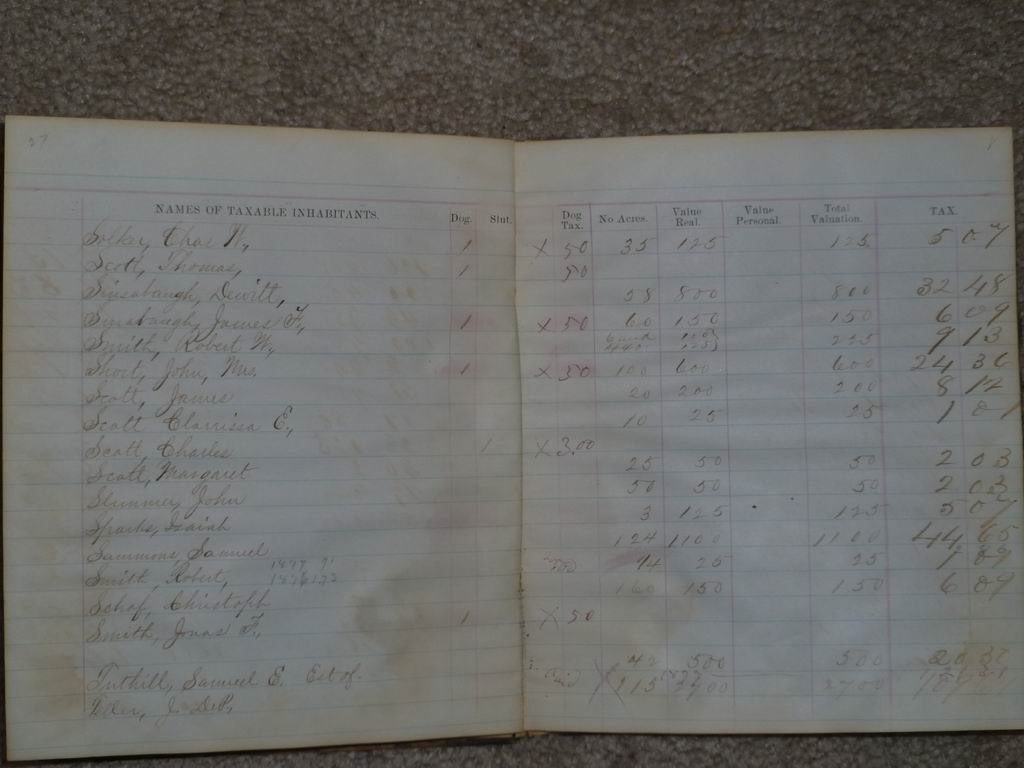 37
NAMES OF TAXABLE INHABITANTS. Dog. Slut. Dog Tax. No Acres. Value Real. Value Personal. Total Valuation. TAX.
Solkey, Chas W, 1 X 50 35 125 125 5 07
Scott, Thomas, 1 50
Sinsabaugh, Dewitt, 58 800 800 32 48
Sinsabaugh, James F, 1 X 50 60 150 150 6 09
Smith, Robert W, 225 9 13
Short, John, Mrs. 1 X 50 100 600 600 24 36
Scott, James 20 200 200 8 12
Scott Clarrissa E, 10 25 25 1 01
Scott, Charles 1 X 3.00
Scott, Margaret 25 50 50 2 03
Slummer, John 50 50 50 2 03
Sparks, Isaiah 3 125 125 5 07
Sammons, Samuel 124 1100 1100 44 65
Smith, Robert, 14 25 25 1 09
Schof, Christoph 160 150 150 6 09
Smith, Jonas F, 1 X 50
Tuthill, Samuel E. Est of. 42 500 500 20 30
J. DeP, 215 2700 2700